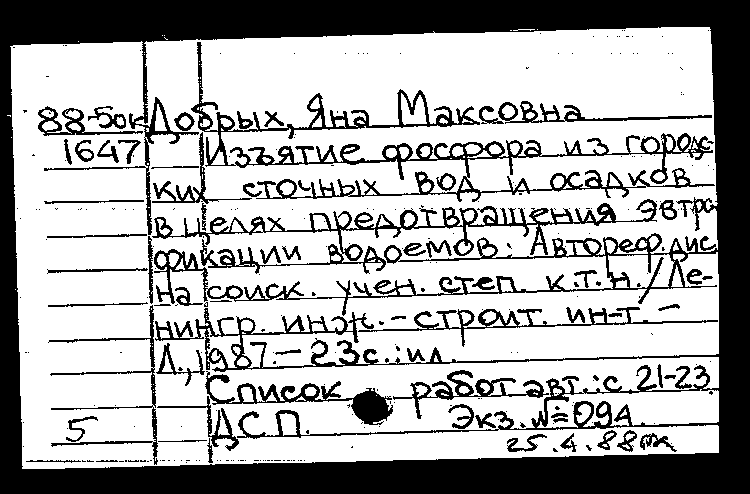 88-5ок Добрых, Яна Максовна
1647 Изъятие фосфора из городс-
ких сточных вод и осадков
в целях предотвращения эвтро
фикации водоемов: Автореф. дис
на соиск. учен. степ. к.т.н. / Ле-
нингр. инж.-строит. ин-т. -
Л., 1987.- 23с.: ил.
Список работ авт.: с. 21-23
5 ДСП. Экз. № 094.
25.4.88